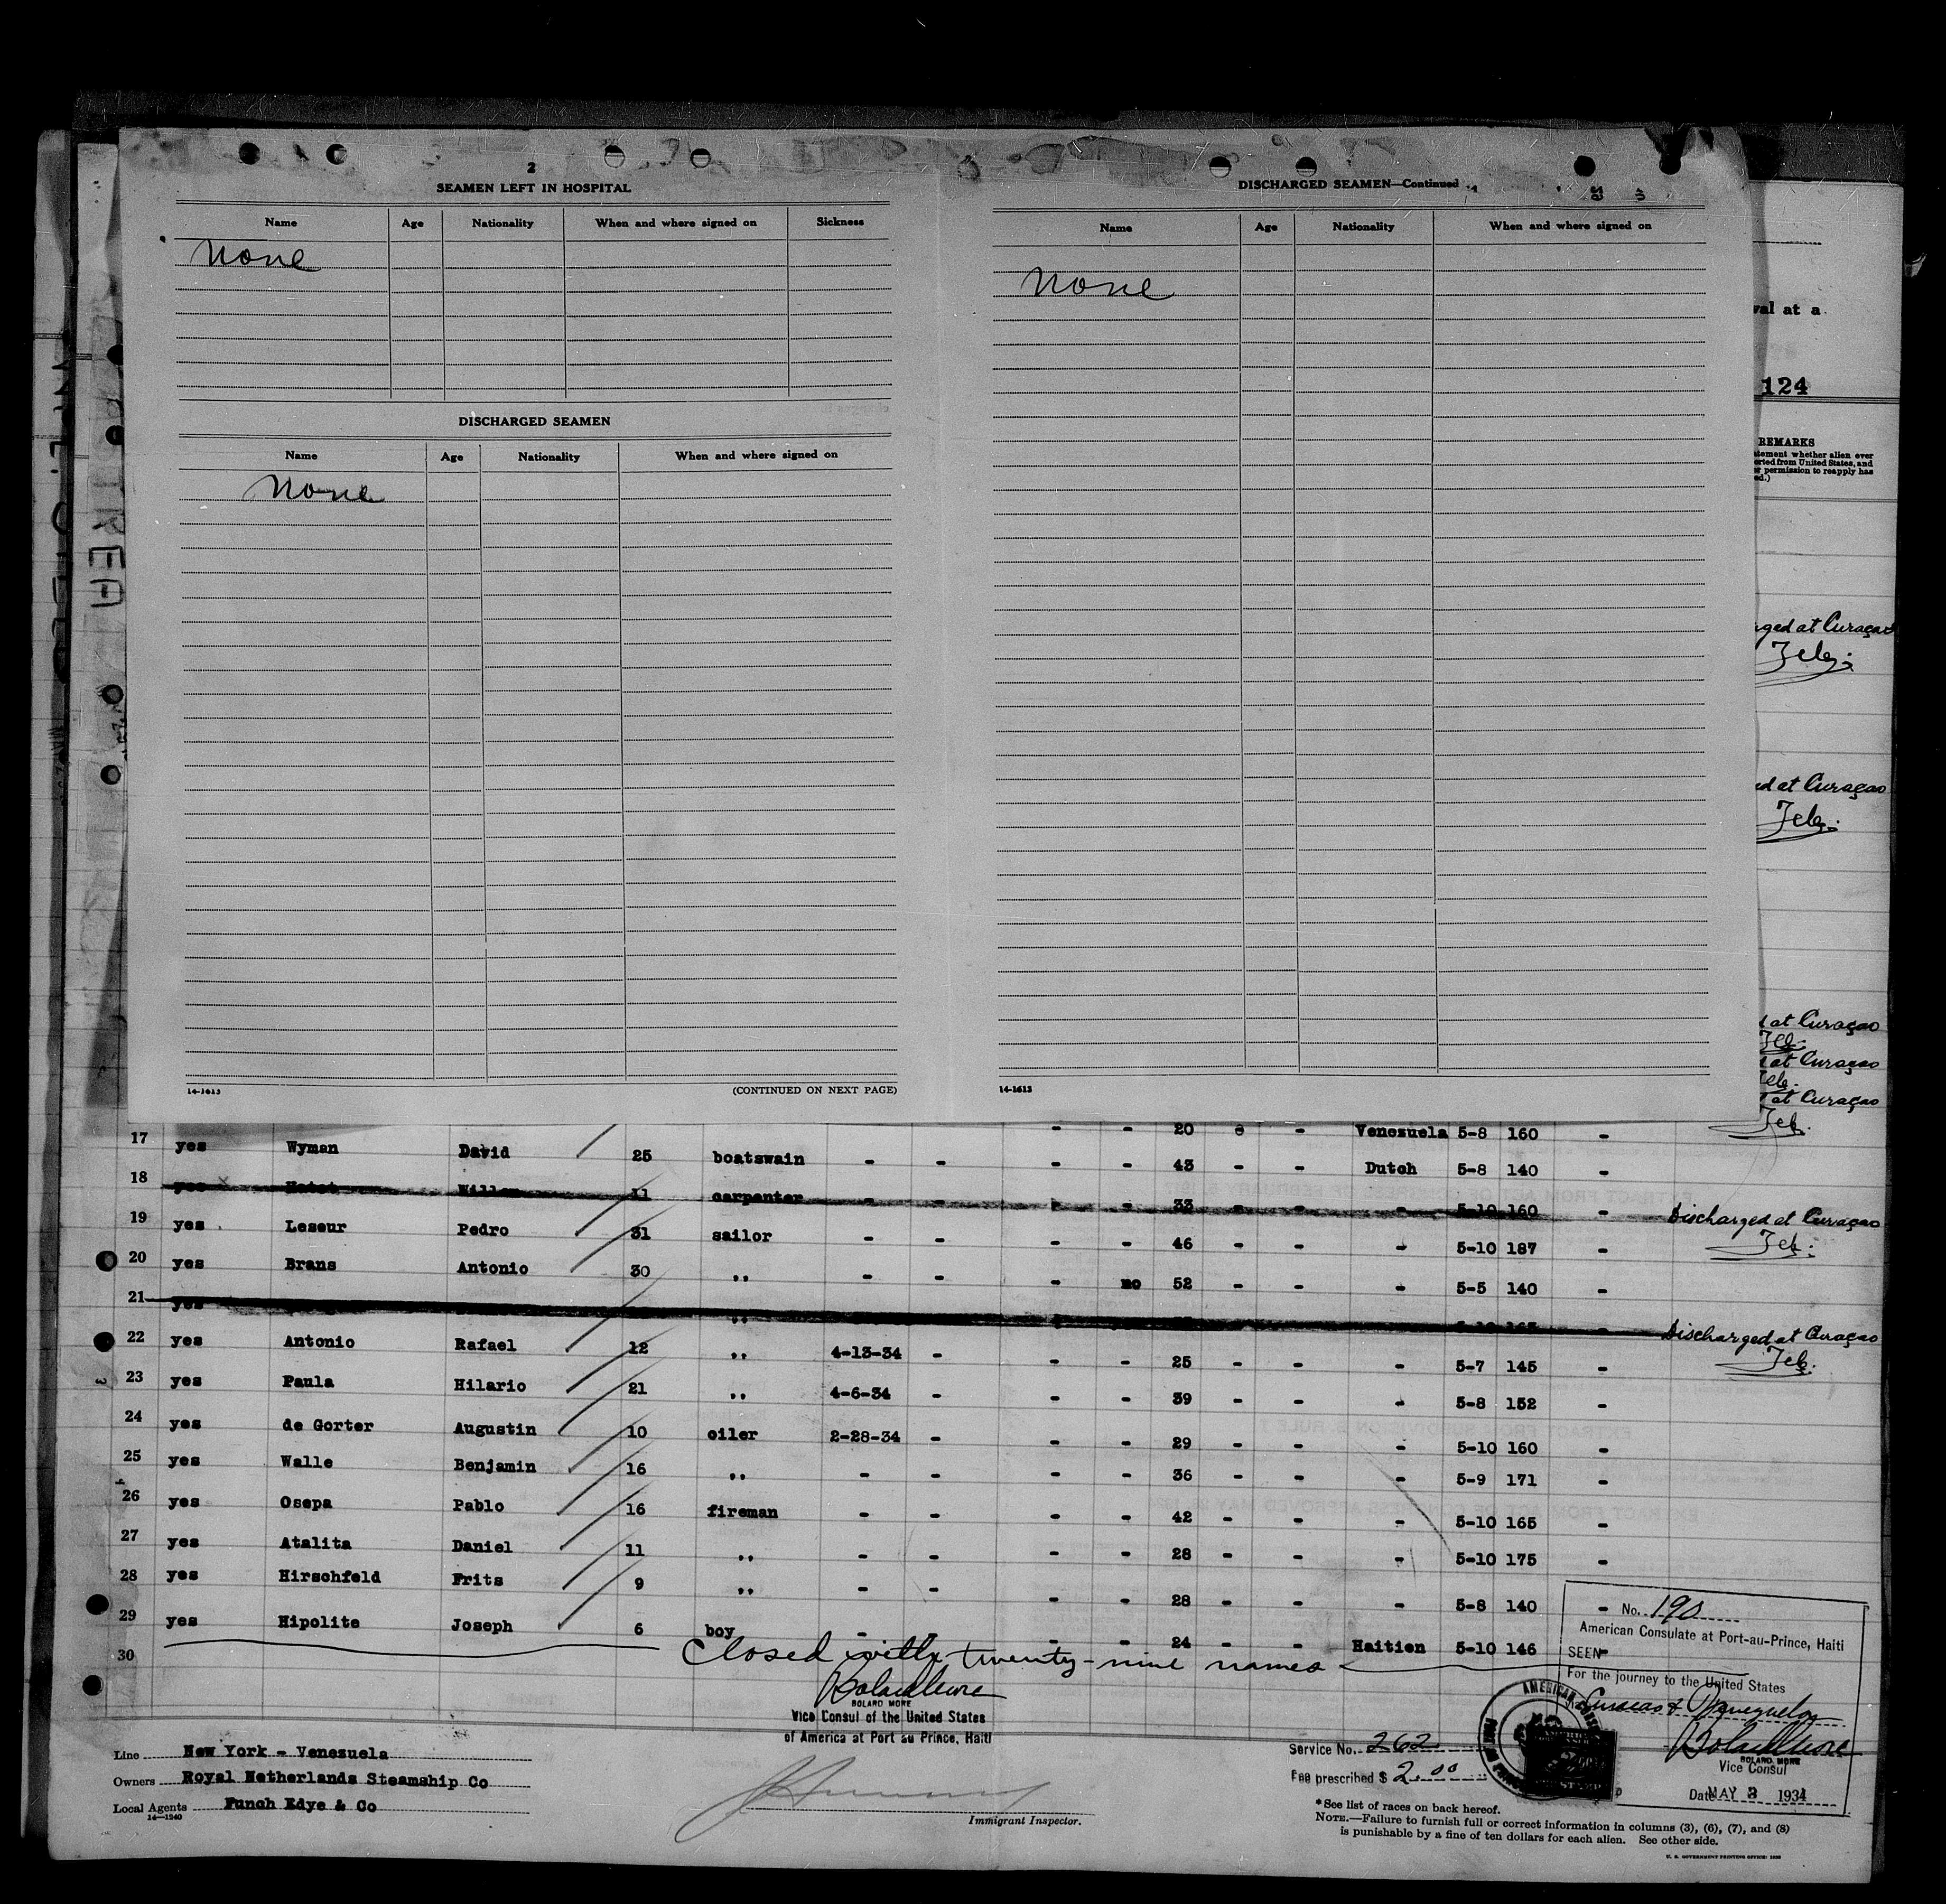 2
SEAMEN LEFT IN HOSPITAL
Name Age Nationality When and where signed on Sickness
None
DISCHARGED SEAMEN
Name Age Nationality When and where signed on
None
14-1613 (CONTINUED ON NEXT PAGE)
DISCHARGED SEAMEN—Continued
Name Age Nationality When and where signed on
None
14-1613
val at a
124
REMARKS
tement whether alien ever
erted from United States, and
r permission to reapply has
ed.)
ged at Curaçao
ed at Curaçao
d at Curaçao
d at Curaçao
at Curaçao
20 - Venezuela 5-8 160 -
17 yes Wyman David 25 boatswain - - - - 43 - - Dutch 5-8 140 -
18 yes Willem 11 carpenter - - - - 33 - - - 5-10 160 - Discharged at Curaçao
19 yes Leseur Pedro 31 sailor - - - - 46 - - - 5-10 187 -
20 yes Brans Antonio 30 ,, - - - no 52 - - - 5-5 140 -
21 yes ,, Discharged at Curaçao
22 yes Antonio Rafael 12 ,, 4-13-34 - - - 25 - - - 5-7 145 -
23 yes Paula Hilario 21 ,, 4-6-34 - - - 39 - - - 5-8 152 -
24 yes de Gorter Augustin 10 oiler 2-28-34 - - - 29 - - - 5-10 160 -
25 yes Walle Benjamin 16 ,, - - - - 36 - - - 5-9 171 -
26 yes Osepa Pablo 16 fireman - - - - 42 - - - 5-10 165 -
27 yes Atalita Daniel 11 ,, - - - - 28 - - - 5-10 175 -
28 yes Hirschfeld Frits 9 ,, - - - - 28 - - - 5-8 140 -
29 yes Hipolite Joseph 6 boy - - - - 24 - - Haitien 5-10 146 -
30
Closed with twenty-nine names
BOLARD MORE
Vice Consul of the United States
of America at Port au Prince, Haiti
No. 190
American Consulate at Port-au-Prince, Haiti
SEEN
For the journey to the United States
Curacao & Venezuela
BOLARD MORE
Vice Consul
Date MAY 3 1934
Line New York - Venezuela
Owners Royal Netherlands Steamship Co
Local Agents Funch Edye & Co
14-1240
Immigrant Inspector.
Service No. 262
Fee prescribed $ 2.00
*See list of races on back hereof.
NOTE.—Failure to furnish full or correct information in columns (3), (6), (7), and (8)
is punishable by a fine of ten dollars for each alien. See other side.
U. S. GOVERNMENT PRINTING OFFICE: